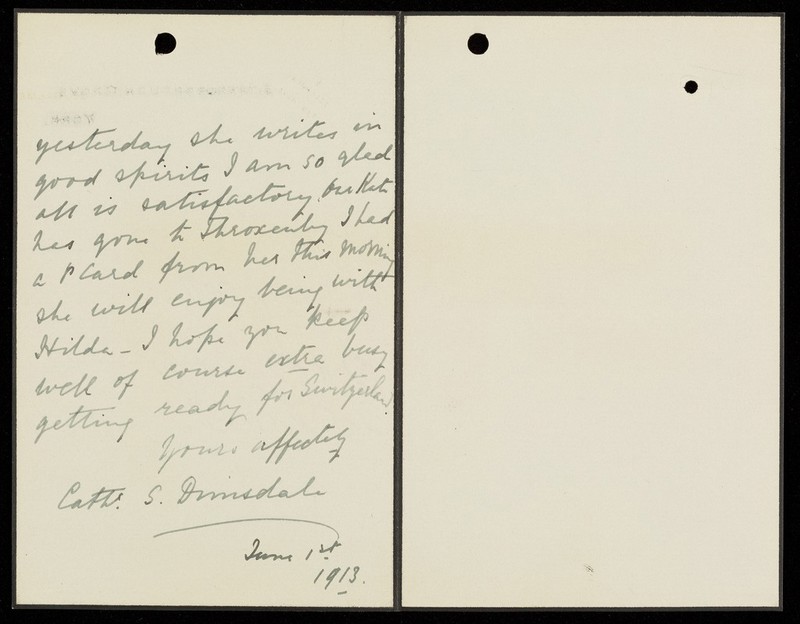 yesterday she writes in
good spirits I am so glad
all is satisfactory. Our Kate
has gone to Throxenby I had
a P Card from her this morning
she will enjoy being with
Hilda - I hope you keep
well of course extra busy
getting ready for Switzerland.
Yours affectely
Cathe. S. Dimsdale
June 1st
1913.